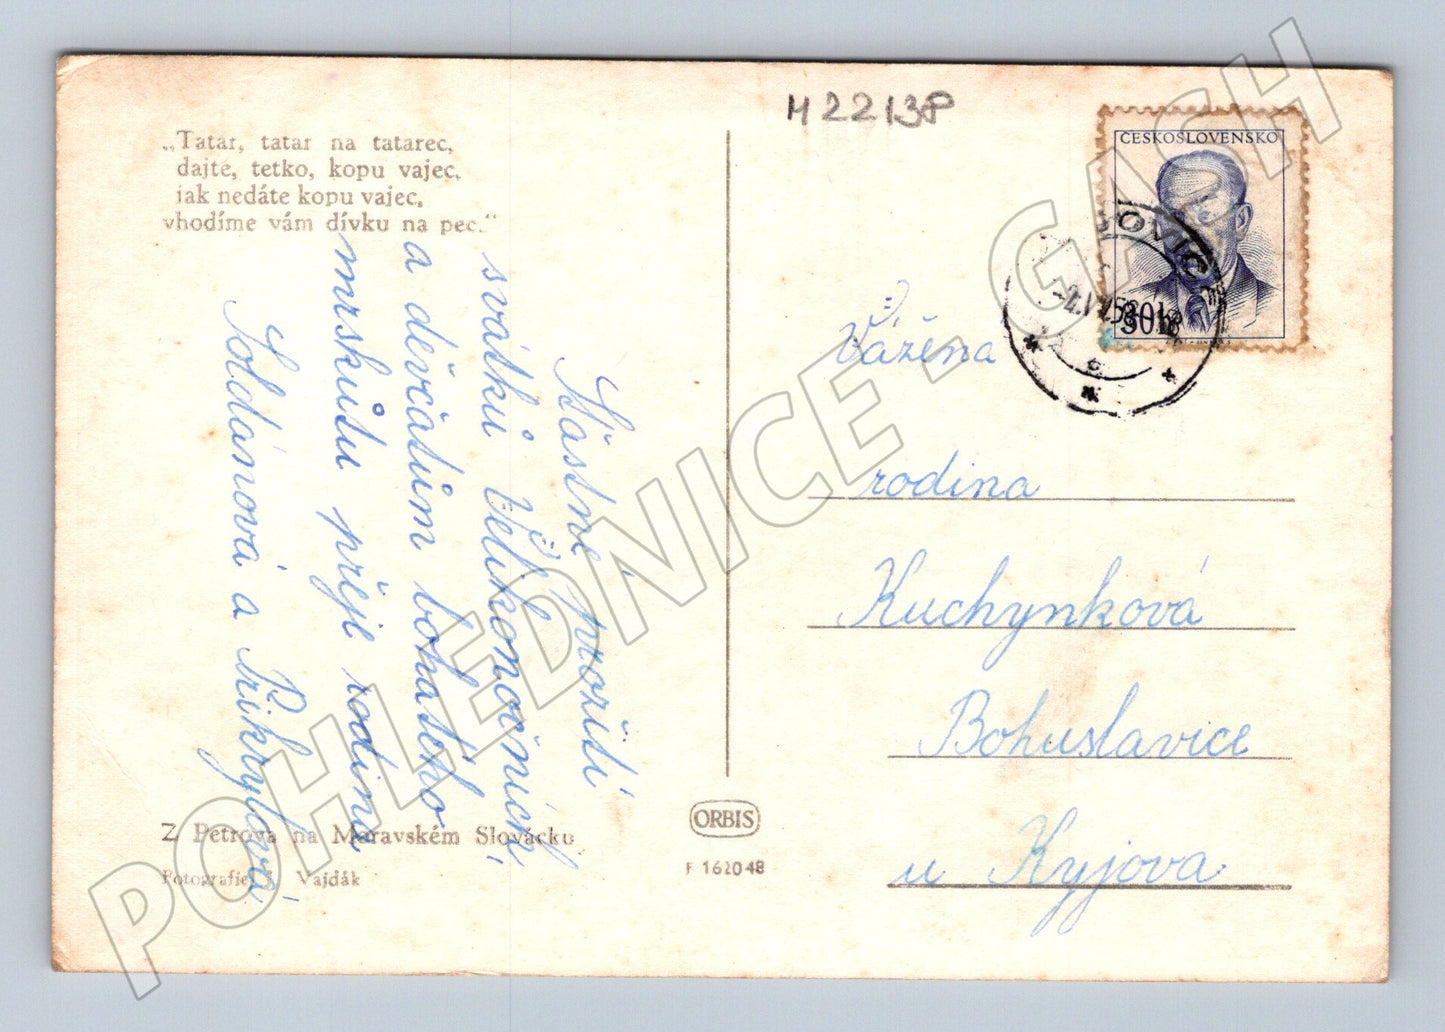 H22138
„Tatar, tatar na tatarec,
dajte, tetko, kopu vajec,
jak nedáte kopu vajec,
vhodíme vám dívku na pec.“
Šťastné prožití
svátků Velikonočních,
a děvčatům bohatého
mrskutu přeje rodina
Soldánová a Přikrylová
Z Petrova na Moravském Slovácku
Fotografie: J. Vajdák
ORBIS
F 162048
ČESKOSLOVENSKO
30h
OVIC
Vážena
rodina
Kuchynková
Bohuslavice
u Kyjova
POHLEDNICE - GASH